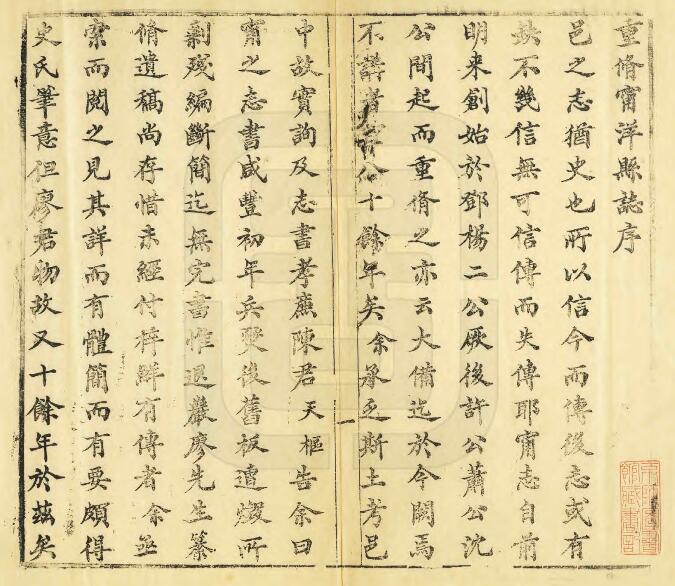 重脩甯洋縣誌序
邑之志猶史也所以信今而傳後志或有
缺不幾信無可信傳而失傳耶甯志自前
明来創始於鄧楊二公厥後許公蕭公沈
公間起而重脩之亦云大備迄於今闕焉
不講者 十餘年矣余承乏斯土考邑
中故實詢及志書孝廉陳君天樞告余曰
甯之志書咸豐初年兵燹後舊板遭燬所
剩殘編斷簡迄無完書惟退巖廖先生纂
脩遺稿尚存惜未經付梓鮮有傳者余亟
索而閱之見其詳而有體簡而有要頗得
史氏筆意但廖君物故又十餘年於茲矣